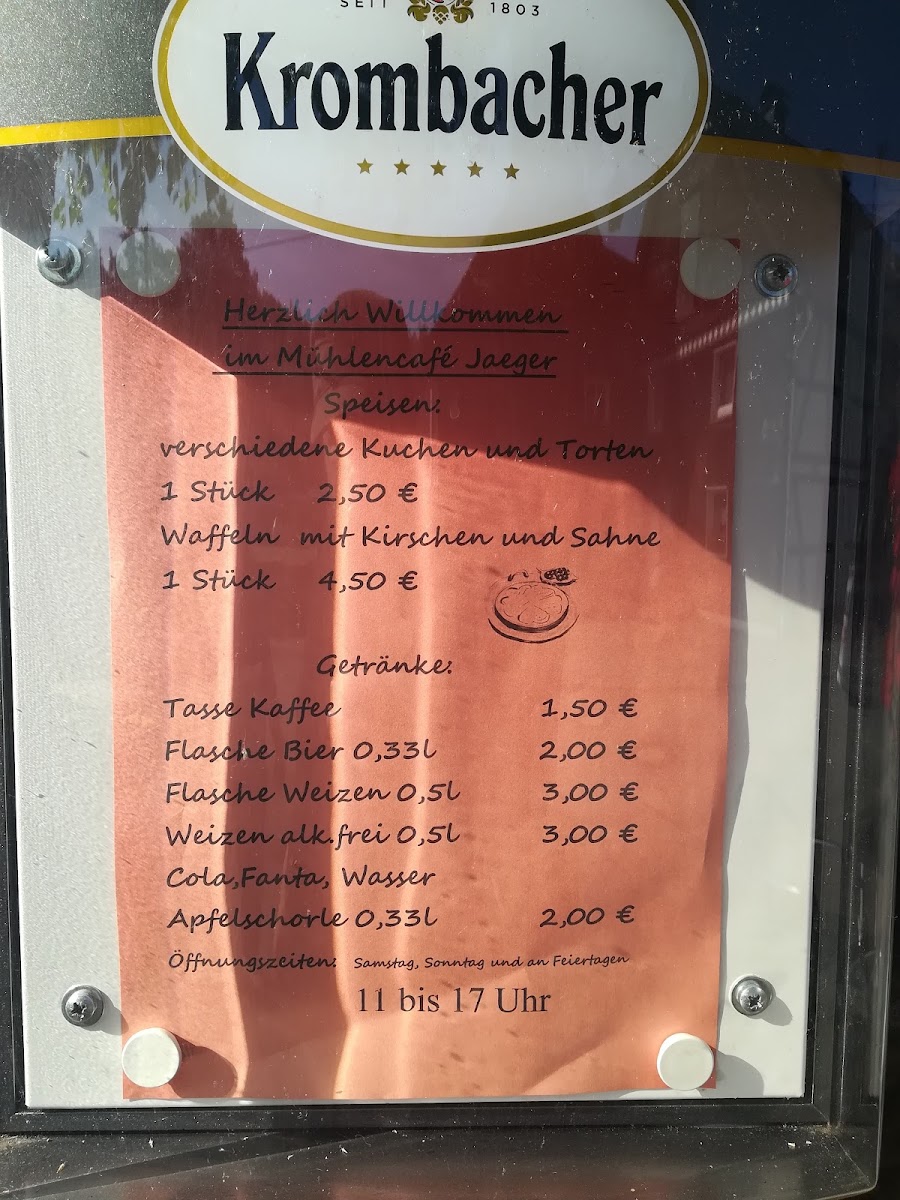 SEIT 1803
Krombacher
Herzlich Willkommen
im Mühlencafé Jaeger
Speisen:
verschiedene Kuchen und Torten
1 Stück 2,50 €
Waffeln mit Kirschen und Sahne
1 Stück 4,50 €
Getränke:
Tasse Kaffee 1,50 €
Flasche Bier 0,33l 2,00 €
Flasche Weizen 0,5l 3,00 €
Weizen alk.frei 0,5l 3,00 €
Cola,Fanta, Wasser
Apfelschorle 0,33l 2,00 €
Öffnungszeiten: Samstag, Sonntag und an Feiertagen
11 bis 17 Uhr